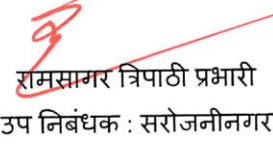 रामसागर त्रिपाठी प्रभारी
उप निबंधक : सरोजनीनगर